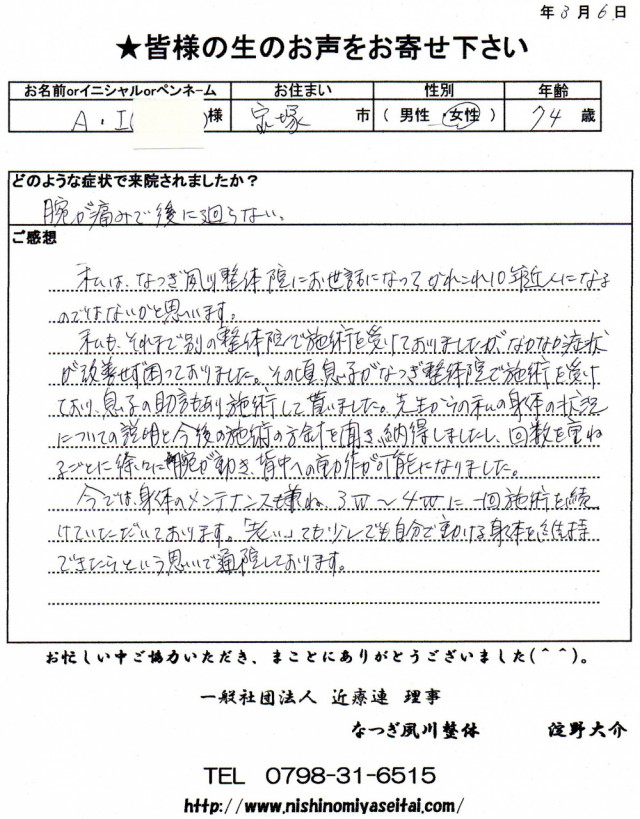 年3月6日
★皆様の生のお声をお寄せ下さい
お名前orイニシャルorペンネーム お住まい 性別 年齢
A・I( )様 宝塚 市 ( 男性 ・女性 ) 74 歳
どのような症状で来院されましたか?
腕が痛みで後に廻らない。
ご感想
私は、なつぎ夙川整体院にお世話になって かれこれ10年近くになる
のではないかと思います。
私も、それまで別の整体院で施術を受けておりましたが、なかなか症状
が改善せず困っておりました。その頃、息子がなつぎ整体院で施術を受け
ており、息子の助言もあり施術して貰いました。先生からの私の身体の状況
についての説明と今後の施術の方針を聞き、納得しましたし、回数を重ね
るごとに徐々に腕が動き、背中への動作が可能になりました。
今では、身体のメンテナンスも兼ね、3W〜4Wに一回施術を続
けていただいております。「老い」ても少しでも自分で動ける身体を維持
できたらという思いで通院しております。
お忙しい中ご協力いただき、まことにありがとうございました(^^)。
一般社団法人 近療連 理事
なつぎ夙川整体 淀野大介
TEL 0798-31-6515
http://www.nishinomiyaseitai.com/